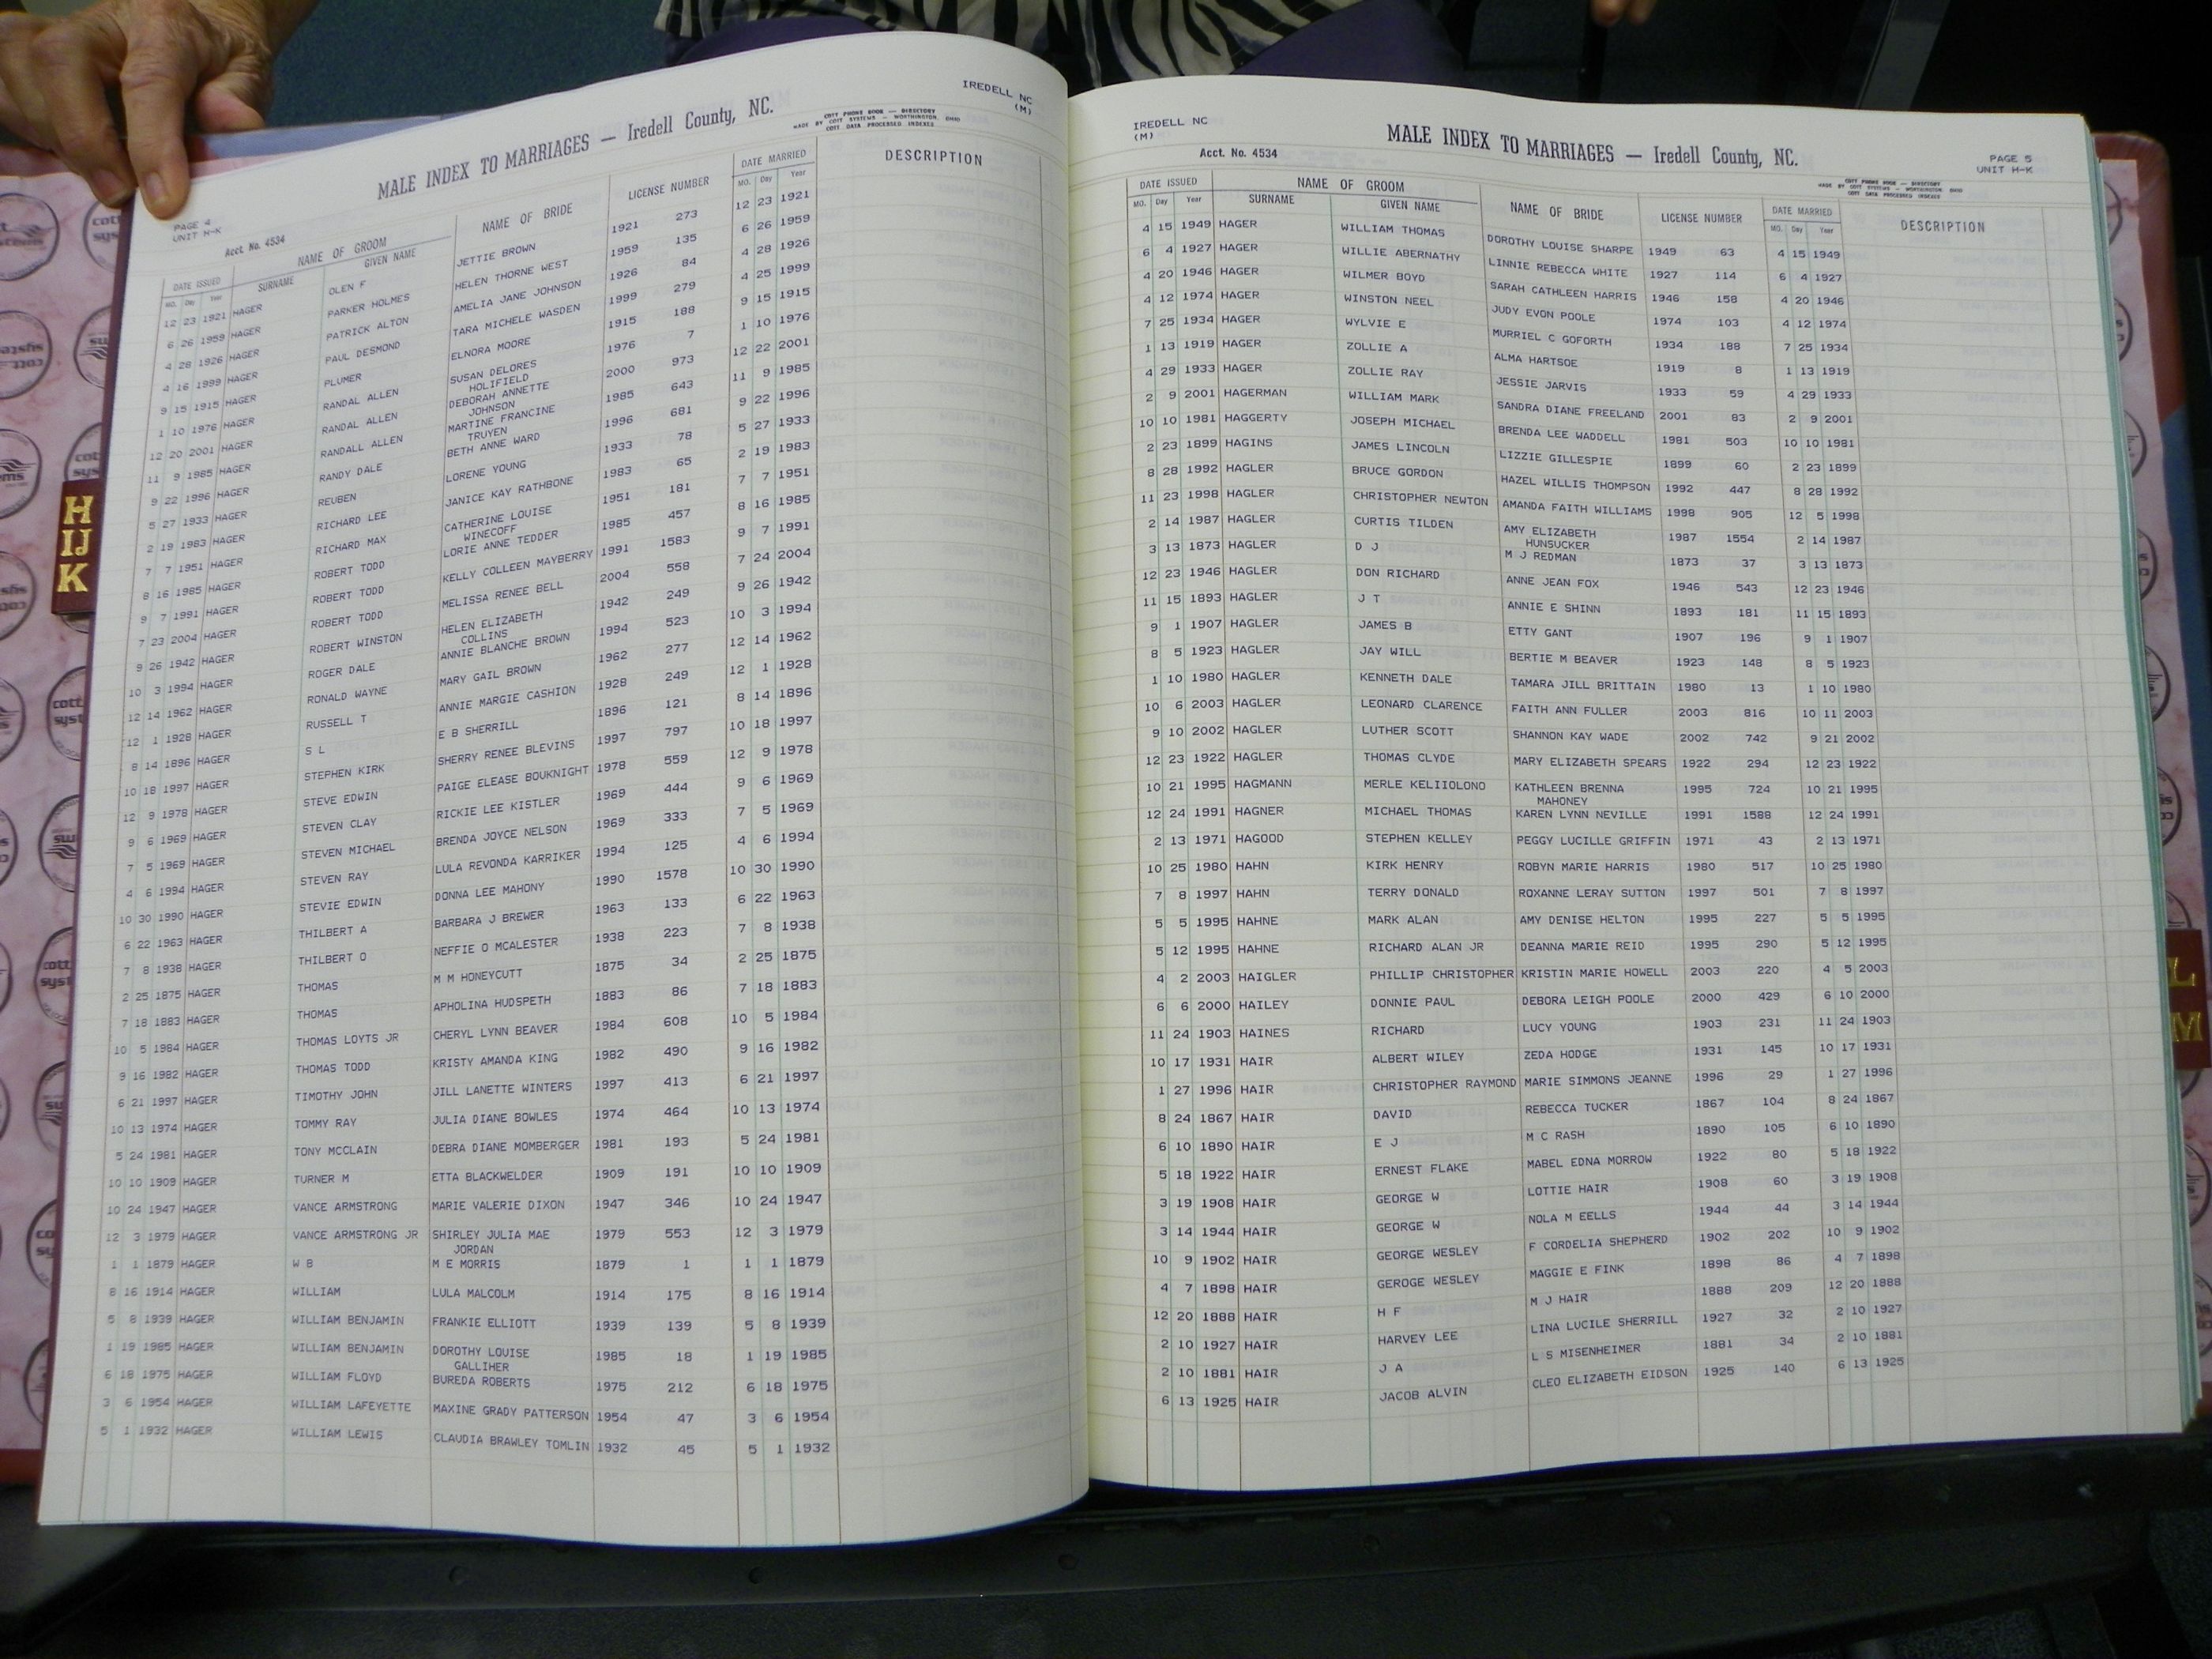 IREDELL NC
(M)
MALE INDEX TO MARRIAGES — Iredell County, NC.
COTT PHONE BOOK — DIRECTORY
MADE BY COTT SYSTEMS — WORTHINGTON, OHIO
COTT DATA PROCESSED INDEXES
PAGE 4
UNIT H-K
Acct. No. 4534
DATE ISSUED NAME OF GROOM NAME OF BRIDE LICENSE NUMBER DATE MARRIED DESCRIPTION
MO. Day Year SURNAME GIVEN NAME MO. Day Year
12 23 1921 HAGER OLEN F JETTIE BROWN 1921 273 12 23 1921
6 26 1959 HAGER PARKER HOLMES HELEN THORNE WEST 1959 135 6 26 1959
4 28 1926 HAGER PATRICK ALTON AMELIA JANE JOHNSON 1926 84 4 28 1926
4 16 1999 HAGER PAUL DESMOND TARA MICHELE WASDEN 1999 279 4 25 1999
9 15 1915 HAGER PLUMER ELNORA MOORE 1915 188 9 15 1915
1 10 1976 HAGER RANDAL ALLEN SUSAN DELORES 1976 7 1 10 1976
HOLIFIELD
12 20 2001 HAGER RANDAL ALLEN DEBORAH ANNETTE 2000 973 12 22 2001
JOHNSON
11 9 1985 HAGER RANDALL ALLEN MARTINE FRANCINE 1985 643 11 9 1985
TRUYEN
9 22 1996 HAGER RANDY DALE BETH ANNE WARD 1996 681 9 22 1996
5 27 1933 HAGER REUBEN LORENE YOUNG 1933 78 5 27 1933
2 19 1983 HAGER RICHARD LEE JANICE KAY RATHBONE 1983 65 2 19 1983
7 7 1951 HAGER RICHARD MAX CATHERINE LOUISE 1951 181 7 7 1951
WINECOFF
8 16 1985 HAGER ROBERT TODD LORIE ANNE TEDDER 1985 457 8 16 1985
9 7 1991 HAGER ROBERT TODD KELLY COLLEEN MAYBERRY 1991 1583 9 7 1991
7 23 2004 HAGER ROBERT TODD MELISSA RENEE BELL 2004 558 7 24 2004
9 26 1942 HAGER ROBERT WINSTON HELEN ELIZABETH 1942 249 9 26 1942
COLLINS
10 3 1994 HAGER ROGER DALE ANNIE BLANCHE BROWN 1994 523 10 3 1994
12 14 1962 HAGER RONALD WAYNE MARY GAIL BROWN 1962 277 12 14 1962
12 1 1928 HAGER RUSSELL T ANNIE MARGIE CASHION 1928 249 12 1 1928
8 14 1896 HAGER S L E B SHERRILL 1896 121 8 14 1896
10 18 1997 HAGER STEPHEN KIRK SHERRY RENEE BLEVINS 1997 797 10 18 1997
12 9 1978 HAGER STEVE EDWIN PAIGE ELEASE BOUKNIGHT 1978 559 12 9 1978
9 6 1969 HAGER STEVEN CLAY RICKIE LEE KISTLER 1969 444 9 6 1969
7 5 1969 HAGER STEVEN MICHAEL BRENDA JOYCE NELSON 1969 333 7 5 1969
4 6 1994 HAGER STEVEN RAY LULA REVONDA KARRIKER 1994 125 4 6 1994
10 30 1990 HAGER STEVIE EDWIN DONNA LEE MAHONY 1990 1578 10 30 1990
6 22 1963 HAGER THILBERT A BARBARA J BREWER 1963 133 6 22 1963
7 8 1938 HAGER THILBERT O NEFFIE O MCALESTER 1938 223 7 8 1938
2 25 1875 HAGER THOMAS M M HONEYCUTT 1875 34 2 25 1875
7 18 1883 HAGER THOMAS APHOLINA HUDSPETH 1883 86 7 18 1883
10 5 1984 HAGER THOMAS LOYTS JR CHERYL LYNN BEAVER 1984 608 10 5 1984
9 16 1982 HAGER THOMAS TODD KRISTY AMANDA KING 1982 490 9 16 1982
6 21 1997 HAGER TIMOTHY JOHN JILL LANETTE WINTERS 1997 413 6 21 1997
10 13 1974 HAGER TOMMY RAY JULIA DIANE BOWLES 1974 464 10 13 1974
5 24 1981 HAGER TONY MCCLAIN DEBRA DIANE MOMBERGER 1981 193 5 24 1981
10 10 1909 HAGER TURNER M ETTA BLACKWELDER 1909 191 10 10 1909
10 24 1947 HAGER VANCE ARMSTRONG MARIE VALERIE DIXON 1947 346 10 24 1947
12 3 1979 HAGER VANCE ARMSTRONG JR SHIRLEY JULIA MAE 1979 553 12 3 1979
JORDAN
1 1 1879 HAGER W B M E MORRIS 1879 1 1 1 1879
8 16 1914 HAGER WILLIAM LULA MALCOLM 1914 175 8 16 1914
5 8 1939 HAGER WILLIAM BENJAMIN FRANKIE ELLIOTT 1939 139 5 8 1939
1 19 1985 HAGER WILLIAM BENJAMIN DOROTHY LOUISE 1985 18 1 19 1985
GALLIHER
6 18 1975 HAGER WILLIAM FLOYD BUREDA ROBERTS 1975 212 6 18 1975
3 6 1954 HAGER WILLIAM LAFEYETTE MAXINE GRADY PATTERSON 1954 47 3 6 1954
5 1 1932 HAGER WILLIAM LEWIS CLAUDIA BRAWLEY TOMLIN 1932 45 5 1 1932
IREDELL NC
(M)
MALE INDEX TO MARRIAGES — Iredell County, NC.
Acct. No. 4534
PAGE 5
UNIT H-K
COTT PHONE BOOK — DIRECTORY
MADE BY COTT SYSTEMS — WORTHINGTON, OHIO
COTT DATA PROCESSED INDEXES
DATE ISSUED NAME OF GROOM NAME OF BRIDE LICENSE NUMBER DATE MARRIED DESCRIPTION
MO. Day Year SURNAME GIVEN NAME MO. Day Year
4 15 1949 HAGER WILLIAM THOMAS DOROTHY LOUISE SHARPE 1949 63 4 15 1949
6 4 1927 HAGER WILLIE ABERNATHY LINNIE REBECCA WHITE 1927 114 6 4 1927
4 20 1946 HAGER WILMER BOYD SARAH CATHLEEN HARRIS 1946 158 4 20 1946
4 12 1974 HAGER WINSTON NEEL JUDY EVON POOLE 1974 103 4 12 1974
7 25 1934 HAGER WYLVIE E MURRIEL C GOFORTH 1934 188 7 25 1934
1 13 1919 HAGER ZOLLIE A ALMA HARTSOE 1919 8 1 13 1919
4 29 1933 HAGER ZOLLIE RAY JESSIE JARVIS 1933 59 4 29 1933
2 9 2001 HAGERMAN WILLIAM MARK SANDRA DIANE FREELAND 2001 83 2 9 2001
10 10 1981 HAGGERTY JOSEPH MICHAEL BRENDA LEE WADDELL 1981 503 10 10 1981
2 23 1899 HAGINS JAMES LINCOLN LIZZIE GILLESPIE 1899 60 2 23 1899
8 28 1992 HAGLER BRUCE GORDON HAZEL WILLIS THOMPSON 1992 447 8 28 1992
11 23 1998 HAGLER CHRISTOPHER NEWTON AMANDA FAITH WILLIAMS 1998 905 12 5 1998
2 14 1987 HAGLER CURTIS TILDEN AMY ELIZABETH 1987 1554 2 14 1987
HUNSUCKER
3 13 1873 HAGLER D J M J REDMAN 1873 37 3 13 1873
12 23 1946 HAGLER DON RICHARD ANNE JEAN FOX 1946 543 12 23 1946
11 15 1893 HAGLER J T ANNIE E SHINN 1893 181 11 15 1893
9 1 1907 HAGLER JAMES B ETTY GANT 1907 196 9 1 1907
8 5 1923 HAGLER JAY WILL BERTIE M BEAVER 1923 148 8 5 1923
1 10 1980 HAGLER KENNETH DALE TAMARA JILL BRITTAIN 1980 13 1 10 1980
10 6 2003 HAGLER LEONARD CLARENCE FAITH ANN FULLER 2003 816 10 11 2003
9 10 2002 HAGLER LUTHER SCOTT SHANNON KAY WADE 2002 742 9 21 2002
12 23 1922 HAGLER THOMAS CLYDE MARY ELIZABETH SPEARS 1922 294 12 23 1922
10 21 1995 HAGMANN MERLE KELIIOLONO KATHLEEN BRENNA 1995 724 10 21 1995
MAHONEY
12 24 1991 HAGNER MICHAEL THOMAS KAREN LYNN NEVILLE 1991 1588 12 24 1991
2 13 1971 HAGOOD STEPHEN KELLEY PEGGY LUCILLE GRIFFIN 1971 43 2 13 1971
10 25 1980 HAHN KIRK HENRY ROBYN MARIE HARRIS 1980 517 10 25 1980
7 8 1997 HAHN TERRY DONALD ROXANNE LERAY SUTTON 1997 501 7 8 1997
5 5 1995 HAHNE MARK ALAN AMY DENISE HELTON 1995 227 5 5 1995
5 12 1995 HAHNE RICHARD ALAN JR DEANNA MARIE REID 1995 290 5 12 1995
4 2 2003 HAIGLER PHILLIP CHRISTOPHER KRISTIN MARIE HOWELL 2003 220 4 5 2003
6 6 2000 HAILEY DONNIE PAUL DEBORA LEIGH POOLE 2000 429 6 10 2000
11 24 1903 HAINES RICHARD LUCY YOUNG 1903 231 11 24 1903
10 17 1931 HAIR ALBERT WILEY ZEDA HODGE 1931 145 10 17 1931
1 27 1996 HAIR CHRISTOPHER RAYMOND MARIE SIMMONS JEANNE 1996 29 1 27 1996
8 24 1867 HAIR DAVID REBECCA TUCKER 1867 104 8 24 1867
6 10 1890 HAIR E J M C RASH 1890 105 6 10 1890
5 18 1922 HAIR ERNEST FLAKE MABEL EDNA MORROW 1922 80 5 18 1922
3 19 1908 HAIR GEORGE W LOTTIE HAIR 1908 60 3 19 1908
3 14 1944 HAIR GEORGE W NOLA M EELLS 1944 44 3 14 1944
10 9 1902 HAIR GEORGE WESLEY F CORDELIA SHEPHERD 1902 202 10 9 1902
4 7 1898 HAIR GEROGE WESLEY MAGGIE E FINK 1898 86 4 7 1898
12 20 1888 HAIR H F M J HAIR 1888 209 12 20 1888
2 10 1927 HAIR HARVEY LEE LINA LUCILE SHERRILL 1927 32 2 10 1927
2 10 1881 HAIR J A L S MISENHEIMER 1881 34 2 10 1881
6 13 1925 HAIR JACOB ALVIN CLEO ELIZABETH EIDSON 1925 140 6 13 1925
H
IJ
K
L
M